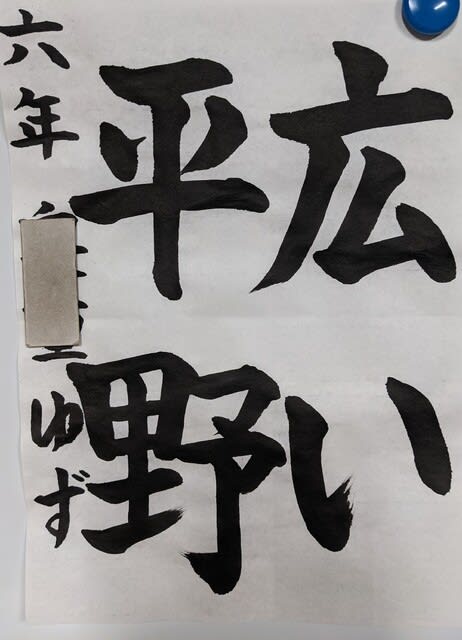 広い
平野
六年 ゆず